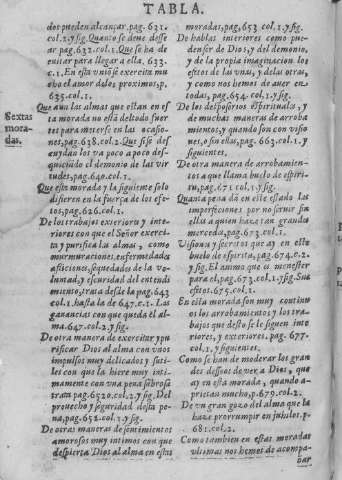 TABLA.
dos pueden alcançar. pag. 631.
col. 2. y sig. Quanto se deue desse
ar pag. 632. col. 1. Que se ha de
euitar para llegar a ella. 633.
c. 1. En esta vniõ se exercita mu
cho el amor de los proximos, p.
635. col. 1.
Sextas
mora-
das.
Que aun las almas que estan en es
ta morada no està del todo fuer
tes para meterse en las ocasio
nes, pag. 638. col. 2. Que si se des
cuydan los va poco a poco des-
quiciãdo el demonio de las vir
tudes, pag. 640. col. 1.
Que esta morada y la siguiente solo
difieren en la fuerça de los efe-
tos, pag. 626. col. 1.
De los trabajos exteriores y inte-
riores con que el Señor exerci
ta y purifica las almas, como
murmuraciones, enfermedades
aflicciones, sequedades de la vo-
luntad, y escuridad del entendi
miento, trata desde la pag. 643
col. 1. hasta la de 647. c. 1. Las
ganancias con que queda el al
ma. 647. col. 2. y sig.
De otra manera de exercitar y pu
rificar Dios al alma con vnos
impulsos muy delicados y suti-
les con que la hiere muy inti-
mamente con vna pena sabrosa
trata pag. 652. col. 2. y sig. Del
prouecho y seguridad desta pe-
na, pag. 652. col. 1. y sig.
De otras maneras de sentimientos
amorosos muy intimos con que
despierta Dios al alma en estas
moradas, pag. 653. col. 1. y sig.
De hablas interiores como pue-
den ser de Dios, y del demonio,
y de la propia imaginacion: los
efetos de las vnas, y de las otras,
y como nos hemos de auer en
todas, pag. 654. col. 1. y sig.
De los desposorios espirituales, y
de muchas maneras de arroba
mientos, y quando son con visio
nes, o sin ellas, pag. 663. col. 1. y
siguientes.
De otra manera de arrobamien-
tos a que llama buelo de espiri-
tu, pag. 671. col. 1. y sig.
Quanta pena dã en este estado las
imperfecciones por no seruir sin
ellas a quien haze tan grandes
mercedes, pag. 673. col. 1.
Visiones y secretos que ay en este
buelo de espiritu, pag. 674. c. 2.
y sig. El animo que es menester
para el, pag. 673. col. 1. y sig. Sus
efetos. 675. col. 1.
En esta morada son muy continu
os los arrobamientos y los tra-
bajos que desto se le siguen inte
riores, y exteriores. pag. 677.
col. 1. y siguientes.
Como se han de moderar los gran
des desseos de ver a Dios, que
ay en esta morada, quando a-
prietan mucho, p. 679. col. 2.
De vn gran gozo del alma que la
haze prorrumpir en jubilos. p.
681. col. 2.
Como tambien en estas moradas
vltimas nos hemos de acompa-
ñar